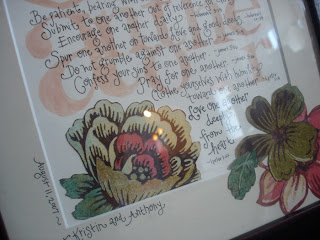 Be patient, bearing with
Submit to one another out of reverence
Encourage one another daily
Spur one another on towards love and good deeds
Do not grumble against one another
Confess your sins to one another
Pray for one another
Clothe yourselves with humility
towards one another
Love one another
deeply
from the
heart
August 11, 2007
Kristin and Anthony